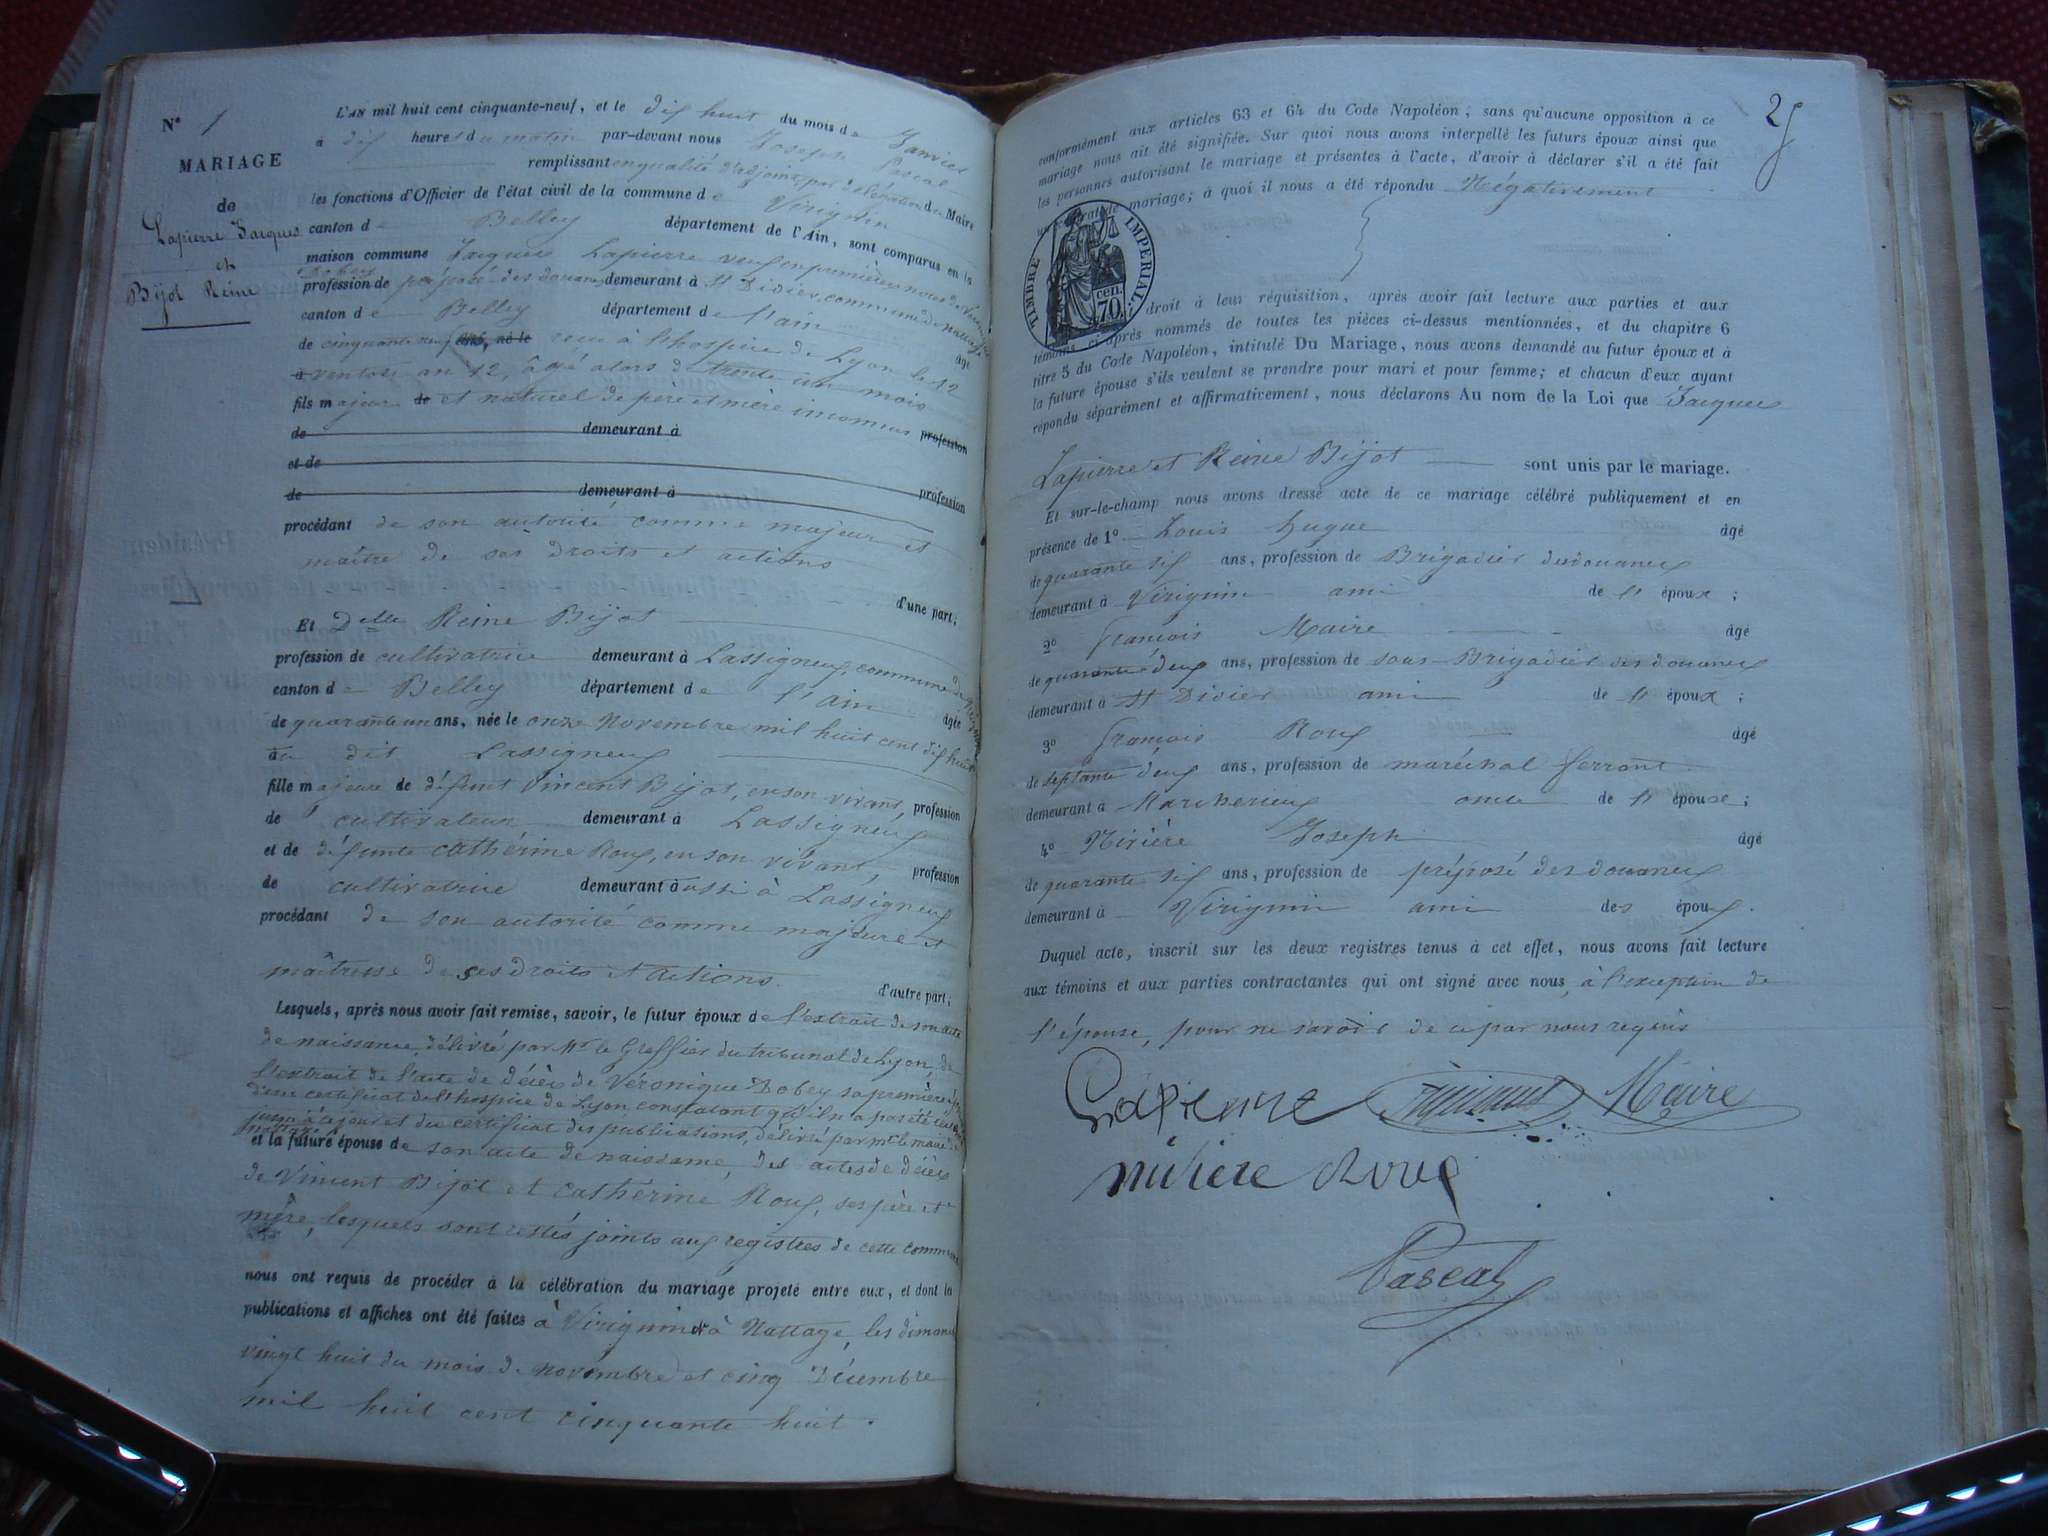 N° 1
MARIAGE
de
Lapierre Jacques
et
Bijot Reine
L'AN mil huit cent cinquante-neuf, et le dix huit du mois de Janvier
à dix heures du matin par-devant nous Joseph Pascal
remplissant en qualité d'adjoint, par délégation du Maire
les fonctions d'Officier de l'état civil de la commune de Virignin
canton de Belley département de l'Ain, sont comparus en la
maison commune Jacques Lapierre veuf en premières noces de Véronique
Dobey
profession de préposé des douanes demeurant à St Didier, commune de Nattage
canton de Belley département de l'ain âgé
de cinquante neuf ans, né le reçu à l'hospice de Lyon le 12
à ventose an 12, âgé alors de trente un mois
fils majeur de et naturel de père et mère inconnus profession
de demeurant à
et de profession
de demeurant à
procédant de son autorité comme majeur et
maître de ses droits et actions
d'une part;
Et Delle Reine Bijot
profession de cultivatrice demeurant à Lassigneux, commune de Virignin
canton de Belley département de l'ain âgée
de quarante un ans, née le onze Novembre mil huit cent dix huit
au dit Lassigneux
fille majeure de défunt Vincent Bijot, en son vivant, profession
de cultivateur demeurant à Lassigneux
et de défunte Cathérine Roux, en son vivant, profession
de cultivatrice demeurant aussi à Lassigneux
procédant de son autorité comme majeure et
maîtresse de ses droits et actions.
d'autre part;
Lesquels, après nous avoir fait remise, savoir, le futur époux de l'extrait de son acte
de naissance, délivré par Mr le Greffier du tribunal de Lyon, de
l'extrait de l'acte de décès de Véronique Dobey sa première
d'un certificat de l'hospice de Lyon constatant qu'il n'a pas été
jusqu'à ce jour et du certificat des publications, délivré par Mr le maire de
Nattage
et la future épouse de son acte de naissance, des actes de décès
de Vincent Bijot et Cathérine Roux, ses père et
mère, lesquels sont restés joints aux registres de cette commune
nous ont requis de procéder à la célébration du mariage projeté entre eux, et dont les
publications et affiches ont été faites à Virignin et à Nattage, les dimanches
vingt huit du mois de novembre et cinq Décembre
mil huit cent cinquante huit.
2
conformément aux articles 63 et 64 du Code Napoléon, sans qu'aucune opposition à ce
mariage nous ait été signifiée. Sur quoi nous avons interpellé les futurs époux ainsi que
les personnes autorisant le mariage et présentes à l'acte, d'avoir à déclarer s'il a été fait
un contrat de mariage; à quoi il nous a été répondu Négativement
TIMBRE IMPERIAL
70 cen.
droit à leur réquisition, après avoir fait lecture aux parties et aux
témoins ci-après nommés de toutes les pièces ci-dessus mentionnées, et du chapitre 6
titre 5 du Code Napoléon, intitulé Du Mariage, nous avons demandé au futur époux et à
la future épouse s'ils veulent se prendre pour mari et pour femme; et chacun d'eux ayant
répondu séparément et affirmativement, nous déclarons Au nom de la Loi que Jacques
Lapierre et Reine Bijot sont unis par le mariage.
Et sur-le-champ nous avons dressé acte de ce mariage célébré publiquement et en
présence de 1° Louis Hugue âgé
de quarante six ans, profession de Brigadier des douanes
demeurant à Virignin ami de l'époux;
2° François Maire âgé
de quarante deux ans, profession de sous-Brigadier des douanes
demeurant à St Didier ami de l'époux;
3° François Roux âgé
de septante deux ans, profession de maréchal ferrant
demeurant à Marcherieux oncle de l'épouse;
4° Nivière Joseph âgé
de quarante six ans, profession de préposé des douanes
demeurant à Virignin ami des époux.
Duquel acte, inscrit sur les deux registres tenus à cet effet, nous avons fait lecture
aux témoins et aux parties contractantes qui ont signé avec nous, à l'exception de
l'épouse, pour ne savoir de ce par nous requis
Lapierre Maire
nivière Roux
Pascal